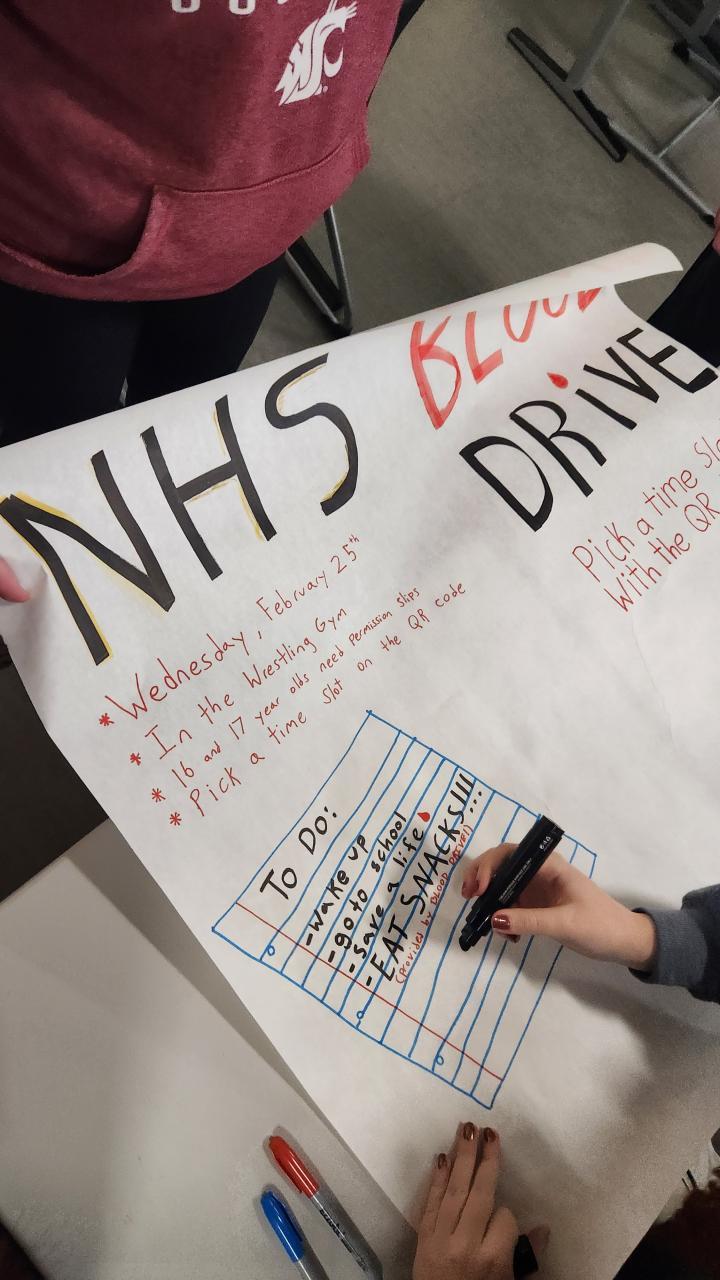 NHS
BLOOD
DRiVE
* Wednesday, February 25th
* In the Wrestling Gym
* 16 and 17 year olds need permission slips
* Pick a time slot on the QR code
Pick a time
With the QR
To Do:
-wake up
-go to school
-save a life
-EAT SNACKS!!!...
(provided by BLOOD DRIVE!)